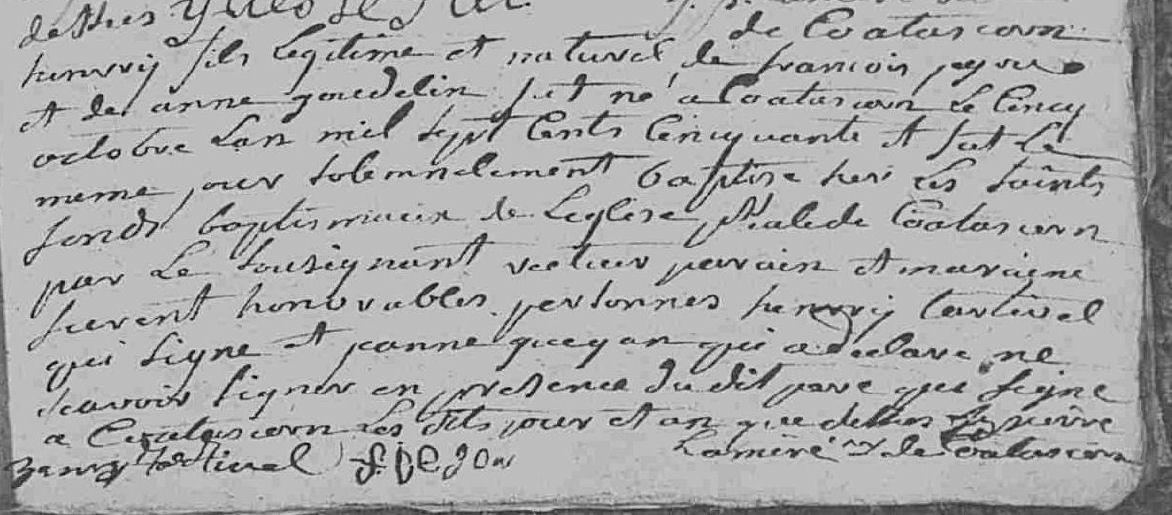 de Coatascorn
henrry fils legitime et naturel de francois
et de anne goudelin fut né a Coatascorn le Cincq
octobre Lan mil sept Cents Cincquante et fut Le
meme jour solemnelement baptise sur les saints
fonds baptismaux de Leglise de Coatascorn
par Le sousignant recteur parain et maraine
furent honorables personnes henrry tartivel
qui signe et janne gueguan qui a declare ne
scavoir signer en presence du dit pere qui signe
a Coatascorn les dits jour et an que dessus
tartivel Lamiré de Coatascorn